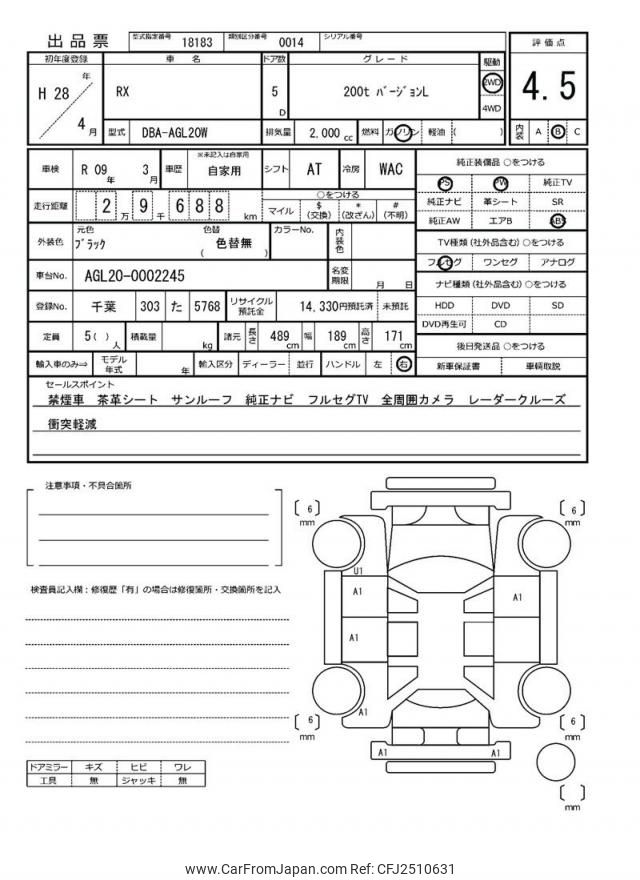 出品票 型式指定番号 18183 類別区分番号 0014 シリアル番号
評価点
4.5
内装 A B C
初年度登録 車名 ドア数 グレード 駆動
H 28 年 4 月 RX 5 D 200t バージョンL 2WD 4WD
型式 DBA-AGL20W 排気量 2,000 cc 燃料 ガソリン 軽油 ( )
車検 R 09 年 3 月 車歴 ※未記入は自家用 自家用 シフト AT 冷房 WAC
走行距離 2 万 9 千 6 8 8 km ○をつける
マイル $(交換) *(改ざん) #(不明)
外装色 元色 ブラック 色替 色替無 ( ) カラーNo. 内装色
車台No. AGL20-0002245 名変期限 月 日
登録No. 千葉 303 た 5768 リサイクル預託金 14,330円預託済 未預託
定員 5( ) 人 積載量 kg 諸元 長さ 489 cm 幅 189 cm 高さ 171 cm
輸入車のみ⇒ モデル年式 年 輸入区分 ディーラー 並行 ハンドル 左 右
純正装備品 ○をつける
PS PW 純正TV
純正ナビ 革シート SR
純正AW エアB ABS
TV種類(社外品含む)○をつける
フルセグ ワンセグ アナログ
ナビ種類(社外品含む)○をつける
HDD DVD SD
DVD再生可 CD
後日発送品 ○をつける
新車保証書 車輌取説
セールスポイント
禁煙車 茶革シート サンルーフ 純正ナビ フルセグTV 全周囲カメラ レーダークルーズ
衝突軽減
注意事項・不具合箇所
検査員記入欄：修復歴「有」の場合は修復箇所・交換箇所を記入
ドアミラー キズ ヒビ ワレ
工具 無 ジャッキ 無
[ 6 ] mm
[ 6 ] mm
U1
A1
A1
A1
A1
[ 6 ] mm
[ 6 ] mm
A1
A1
[ ] mm
www.CarFromJapan.com Ref: CFJ2510631